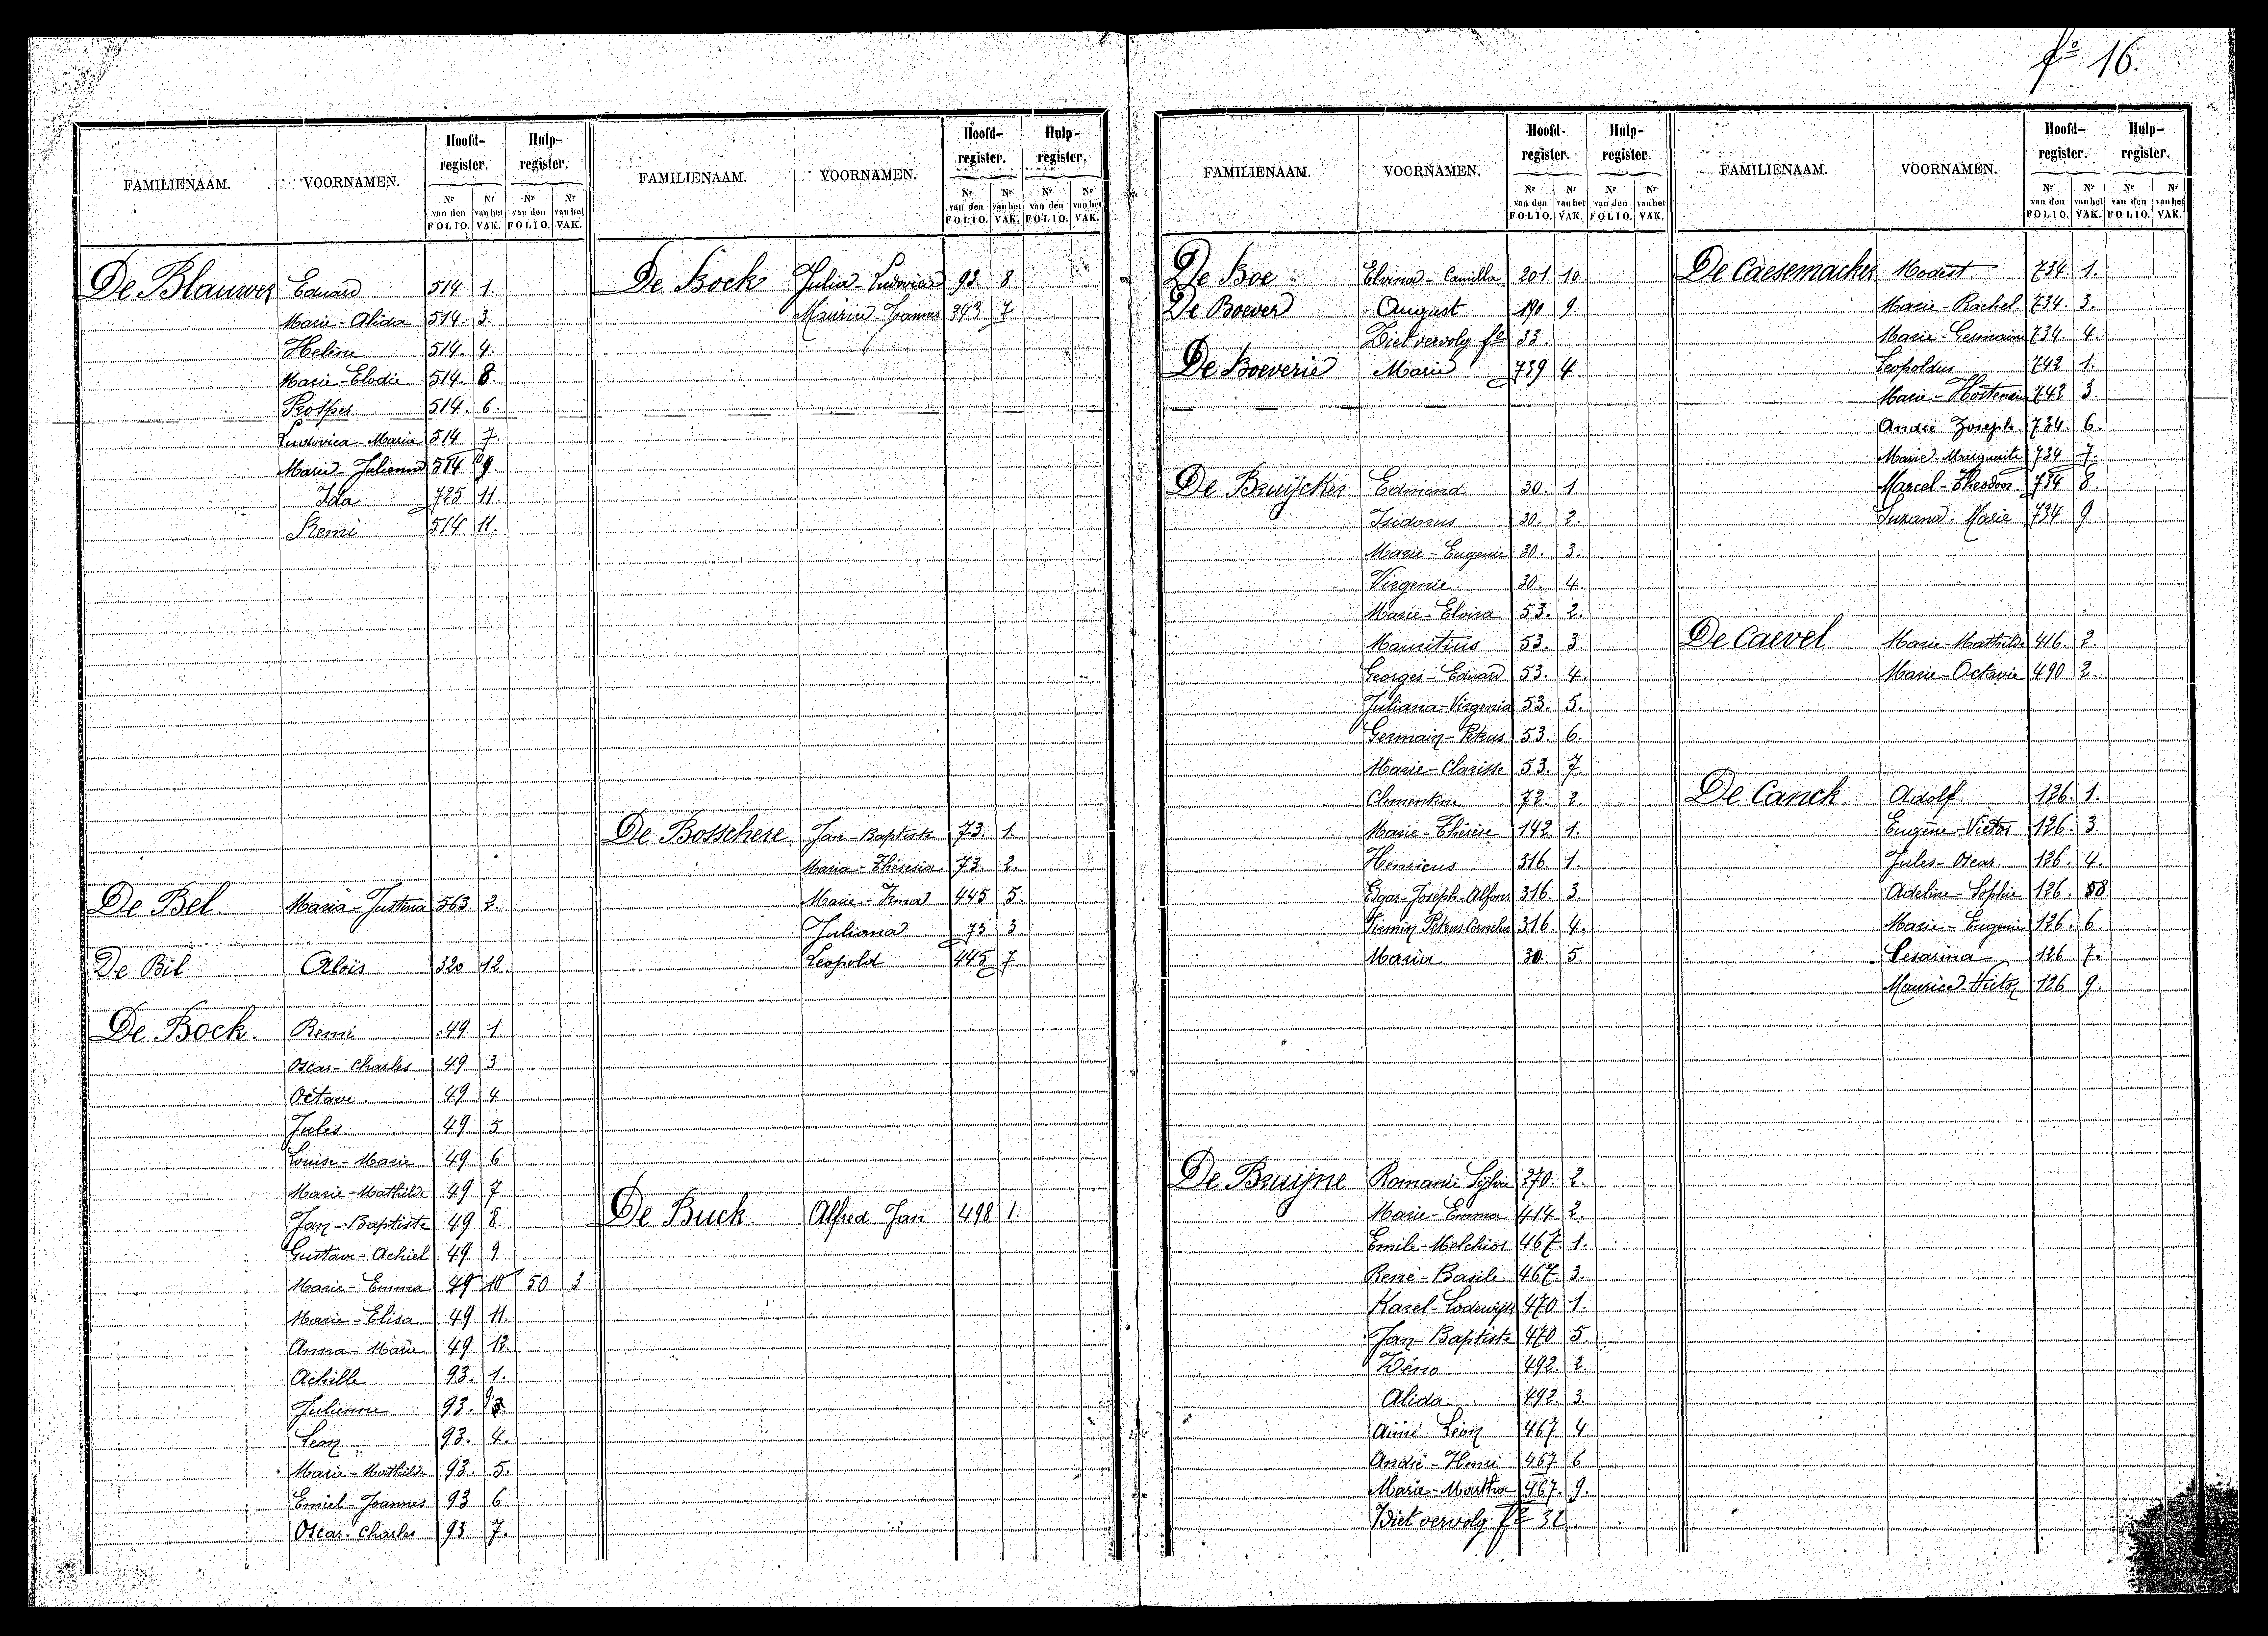 fº 16.
FAMILIENAAM. VOORNAMEN. Hoofd-register. Hulp-register.
Nr van den FOLIO. Nr van het VAK. Nr van den FOLIO. Nr van het VAK.
De Blauwer Eduard 514 1.
Marie-Alida 514. 3.
Helène 514. 4.
Marie-Elodie 514. 8.
Prosper 514. 6.
Ludovica-Maria 514 7.
Marie-Julienne 514
Ida 725 11.
Remi 514 11.
De Bel Maria-Justina 563. 2.
De Bil Aloïs 320 12.
De Bock. Remi 49 1
Oscar-Charles 49 3
Octave 49 4
Jules 49 5
Louise-Marie 49 6
Marie-Mathilde 49 7
Jan-Baptiste 49 8.
Gustave-Achiel 49 9
Marie-Emma 49 10 50 3
Marie-Elisa 49 11.
Anna-Marie 49 12.
Achille 93. 1.
Julienne 93.
Léon 93. 4.
Marie-Mathilde 93. 5.
Emiel-Joannes 93 6
Oscar-Charles 93 7.
FAMILIENAAM. VOORNAMEN. Hoofd-register. Hulp-register.
Nr van den FOLIO. Nr van het VAK. Nr van den FOLIO. Nr van het VAK.
De Bock Julia-Ludovica 93 8
Maurice-Joannes 343 7
De Bosschere Jan-Baptiste 73. 1.
Maria-Theresia 73. 2.
Marie-Irma 445 5.
Juliana 73 3
Leopold 445 7.
De Buck. Alfred Jan 498 1.
FAMILIENAAM. VOORNAMEN. Hoofd-register. Hulp-register.
Nr van den FOLIO. Nr van het VAK. Nr van den FOLIO. Nr van het VAK.
De Boe Elvina-Camilla 201 10
De Boever August 190 9.
Ziet vervolg fº 33.
De Boeverie Marie 739 4
De Bruÿcker Edmond 30. 1.
Isidorus 30. 2.
Marie-Eugenie 30. 3.
Virgenie 30. 4.
Marie-Elvira 53. 2.
Mauritius 53. 3.
Georges-Eduard 53. 4.
Juliana-Virgenia 53. 5.
Germain-Petrus 53. 6.
Marie-Clarisse 53. 7.
Clementine 72. 2.
Marie-Thérèse 142 1.
Henricus 316 1.
Edgar-Joseph-Alfons 316. 3.
Firmin Petrus Cornelius 316 4.
Maria 30. 5.
De Bruijne Romanie Sÿlvie 270. 2.
Marie-Emma 414 2.
Emile-Melchior 467. 1.
René-Basile 467. 3.
Karel-Lodewijk 470 1.
Jan-Baptiste 470 5.
492. 2.
Alida 492. 3.
Aimé Léon 467 4
André-Henri 467 6
Marie-Martha 467. 9.
Ziet vervolg fº 32
FAMILIENAAM. VOORNAMEN. Hoofd-register. Hulp-register.
Nr van den FOLIO. Nr van het VAK. Nr van den FOLIO. Nr van het VAK.
De Caesemacker Modest 734 1.
Marie-Rachel 734. 3.
Marie-Germaine 734. 4.
Leopoldus 742 1.
Marie-Hortensia 742 3.
André Joseph 734. 6.
Marie-Marguerite 734 7.
Marcel-Theodoor 734 8
Suzana-Marie 734 9
De Caevel Marie-Mathilde 416. 2.
Marie-Octavie 490 2.
De Canck. Adolf. 126. 1.
Eugène-Victor 126. 3.
Jules-Oscar. 126. 4.
Adeline-Sophie 126. 8.
Marie-Eugenie 126. 6.
Cesarina 126 7.
Maurice-Victor 126 9.